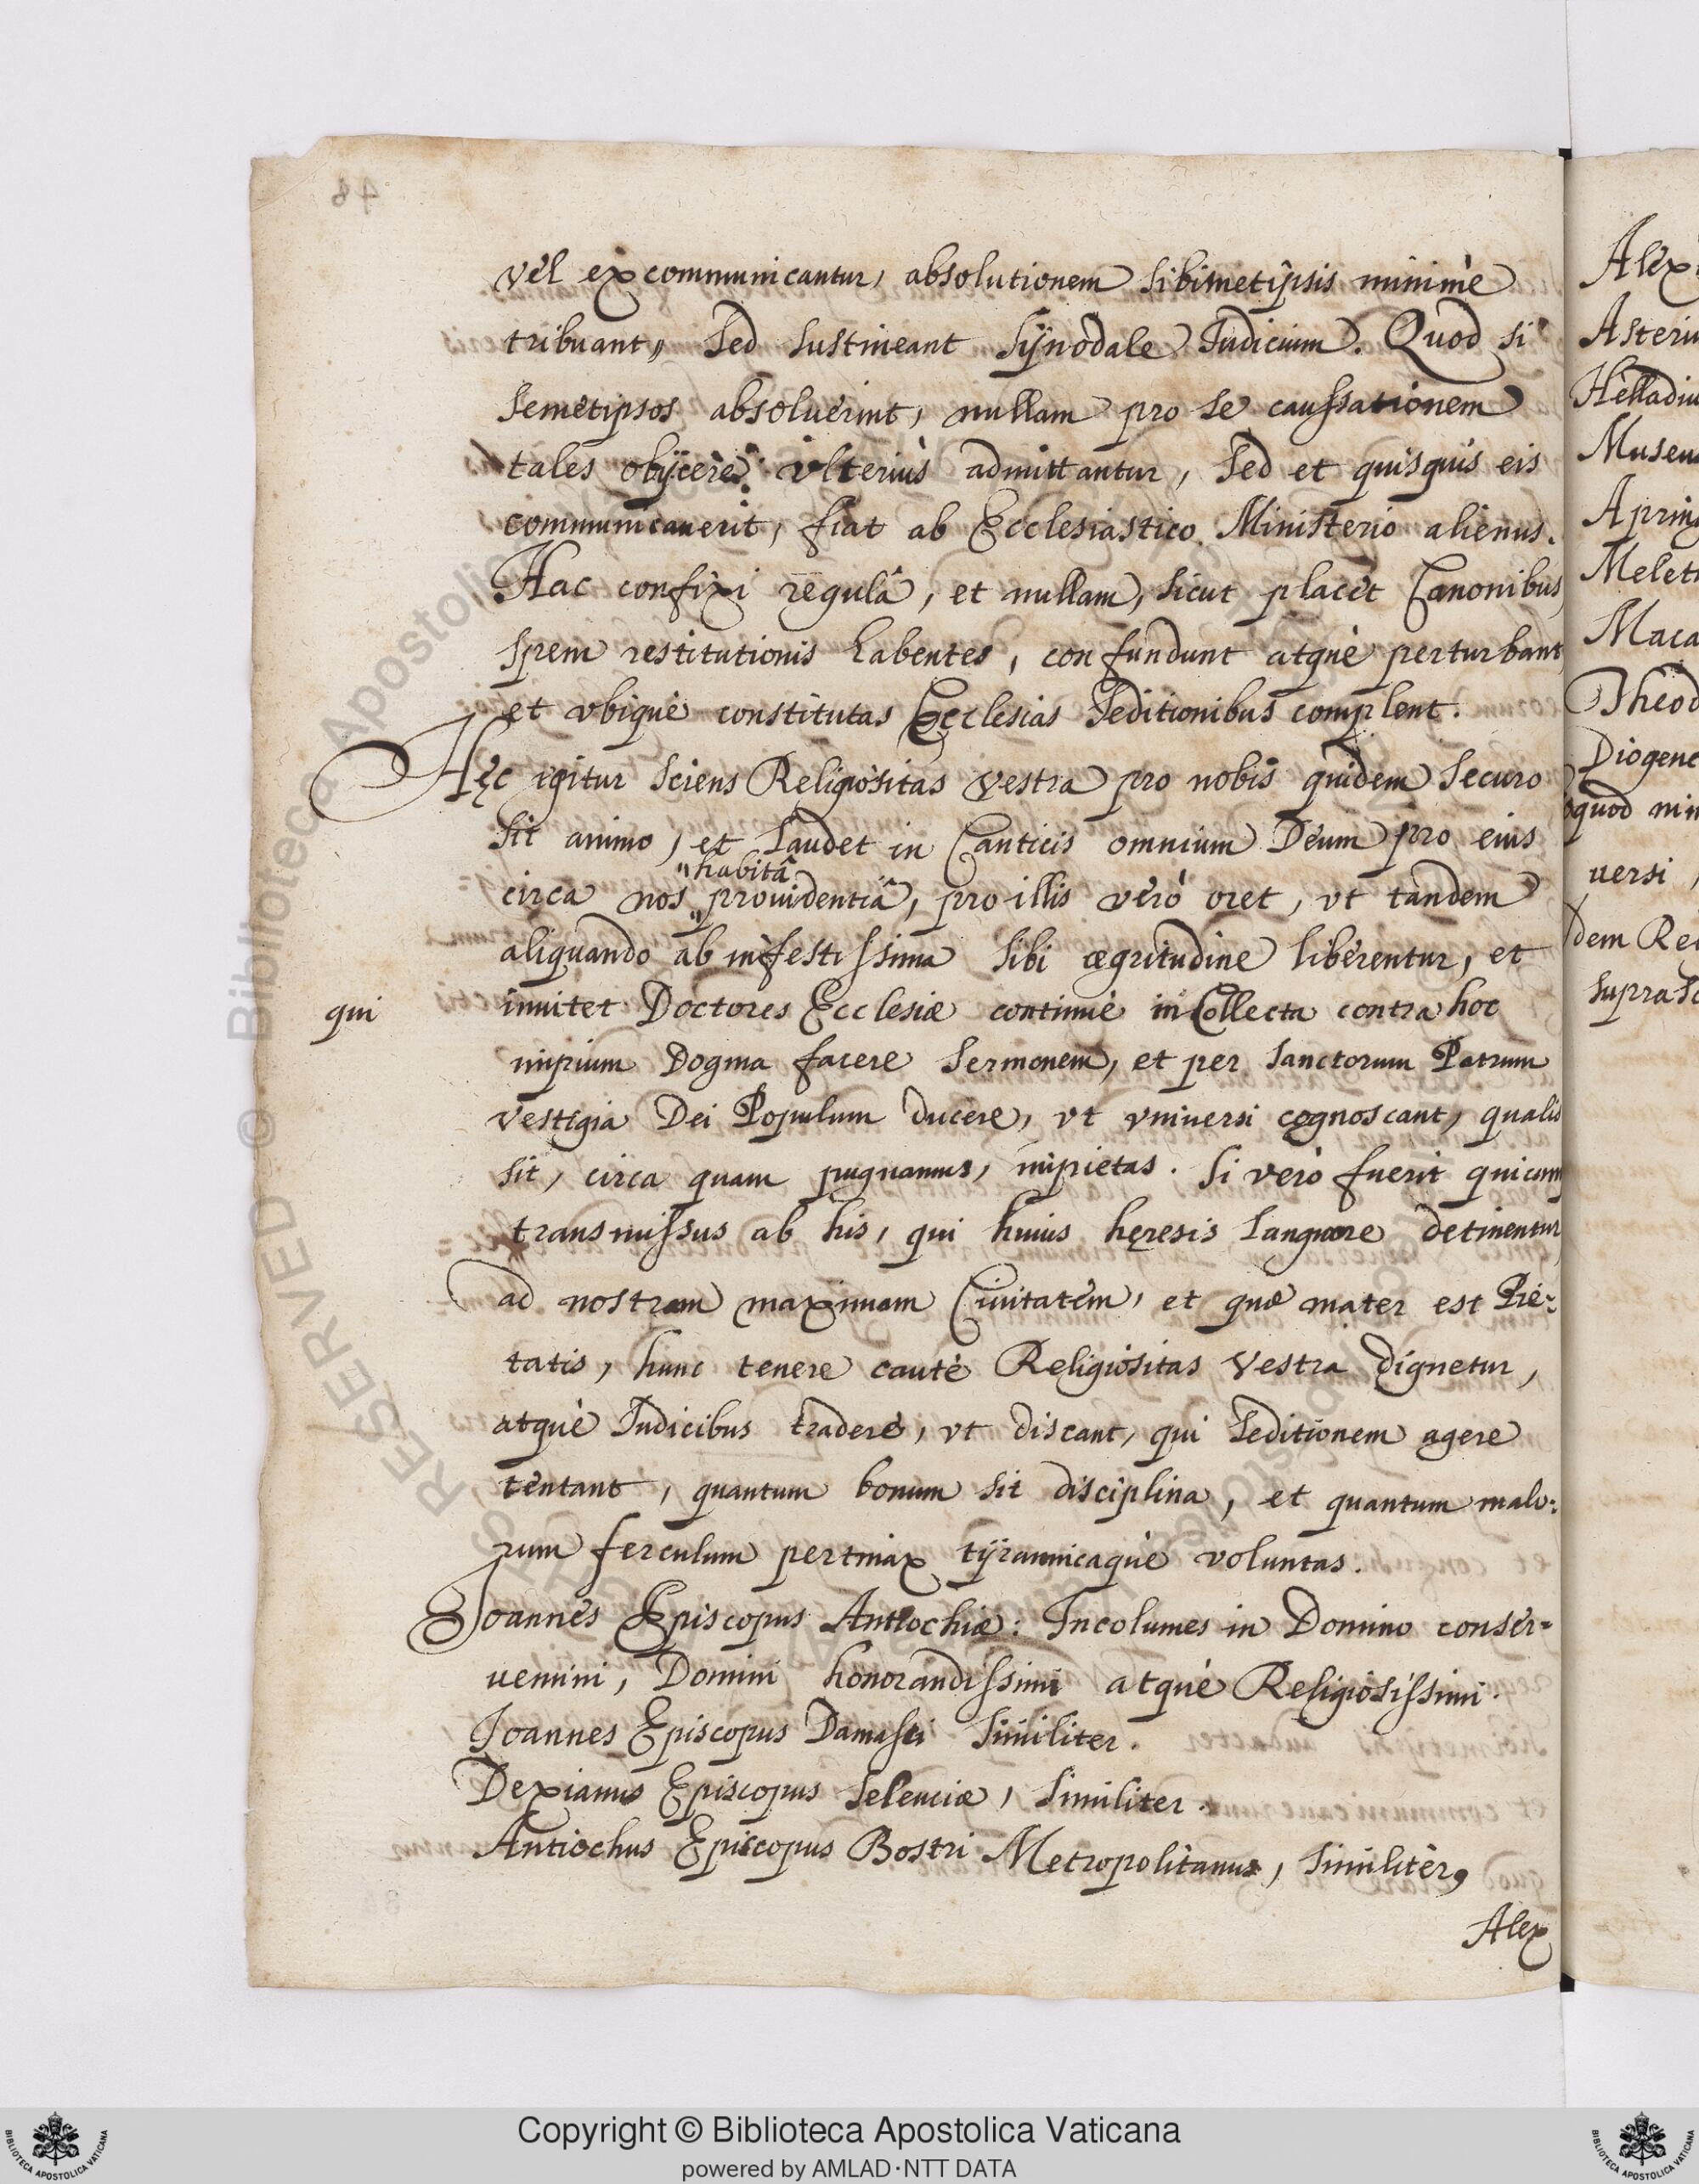 vel excommunicantur, absolutionem sibimetipsis minimè
tribuant, sed sustineant sÿnodale Iudicium. Quod si
semetipsos absoluerint, nullam pro se caussationem
tales obÿcere ulterius admittantur, sed et quisquis eis
communicauerit, fiat ab Ecclesiastico Ministerio alienus.
Hac confixi regulâ, et nullam, sicut placet Canonibus
spem restitutionis habentes, confundunt atque perturbant
et vbique constitutas Ecclesias seditionibus complent.
Hęc igitur sciens Religiositas vestra pro nobis quidem securo
sit animo, et laudet in Canticis omnium Deum pro eius
habitâ
circa nos prouidentiâ, pro illis verò oret, vt tandem
aliquando ab infestissima sibi ægritudine liberentur, et
qui
inuitet Doctores Ecclesiæ continuè in Collecta contra hoc
impium Dogma facere sermonem, et per sanctorum Patrum
vestigia Dei Populum ducere, vt vniuersi cognoscant, qualis
sit, circa quam pugnamus, impietas. Si verò fuerit
transmissus ab his, qui huius hęresis languore detinentur
ad nostram maximam Ciuitatem, et quæ mater est Pie-
tatis, hunc tenere cautè Religiositas vestra dignetur,
atque Iudicibus tradere, vt discant, qui seditionem agere
tentant, quantum bonum sit disciplina, et quantum malo-
rum ferculum pertinax tÿrannicaque voluntas.
Joannes Episcopus Antiochiæ: Incolumes in Domino conser-
uemini, Domini honorandissimi atque Religiosissimi.
Joannes Episcopus Damasci similiter.
Dexianus Episcopus Seleuciæ, similiter.
Antiochus Episcopus Bostri Metropolitanus, similiter,
Alex
Asteriu
Helladiu
Museu
Meleti
Maca
Theod
Diogene
quod
uersi,
dem Re
supra
48
© Biblioteca Apostolica
RESERVED
Copyright © Biblioteca Apostolica Vaticana
powered by AMLAD·NTT DATA
BIBLIOTECA APOSTOLICA VATICANA
BIBLIOTECA APOSTOLICA VATICANA